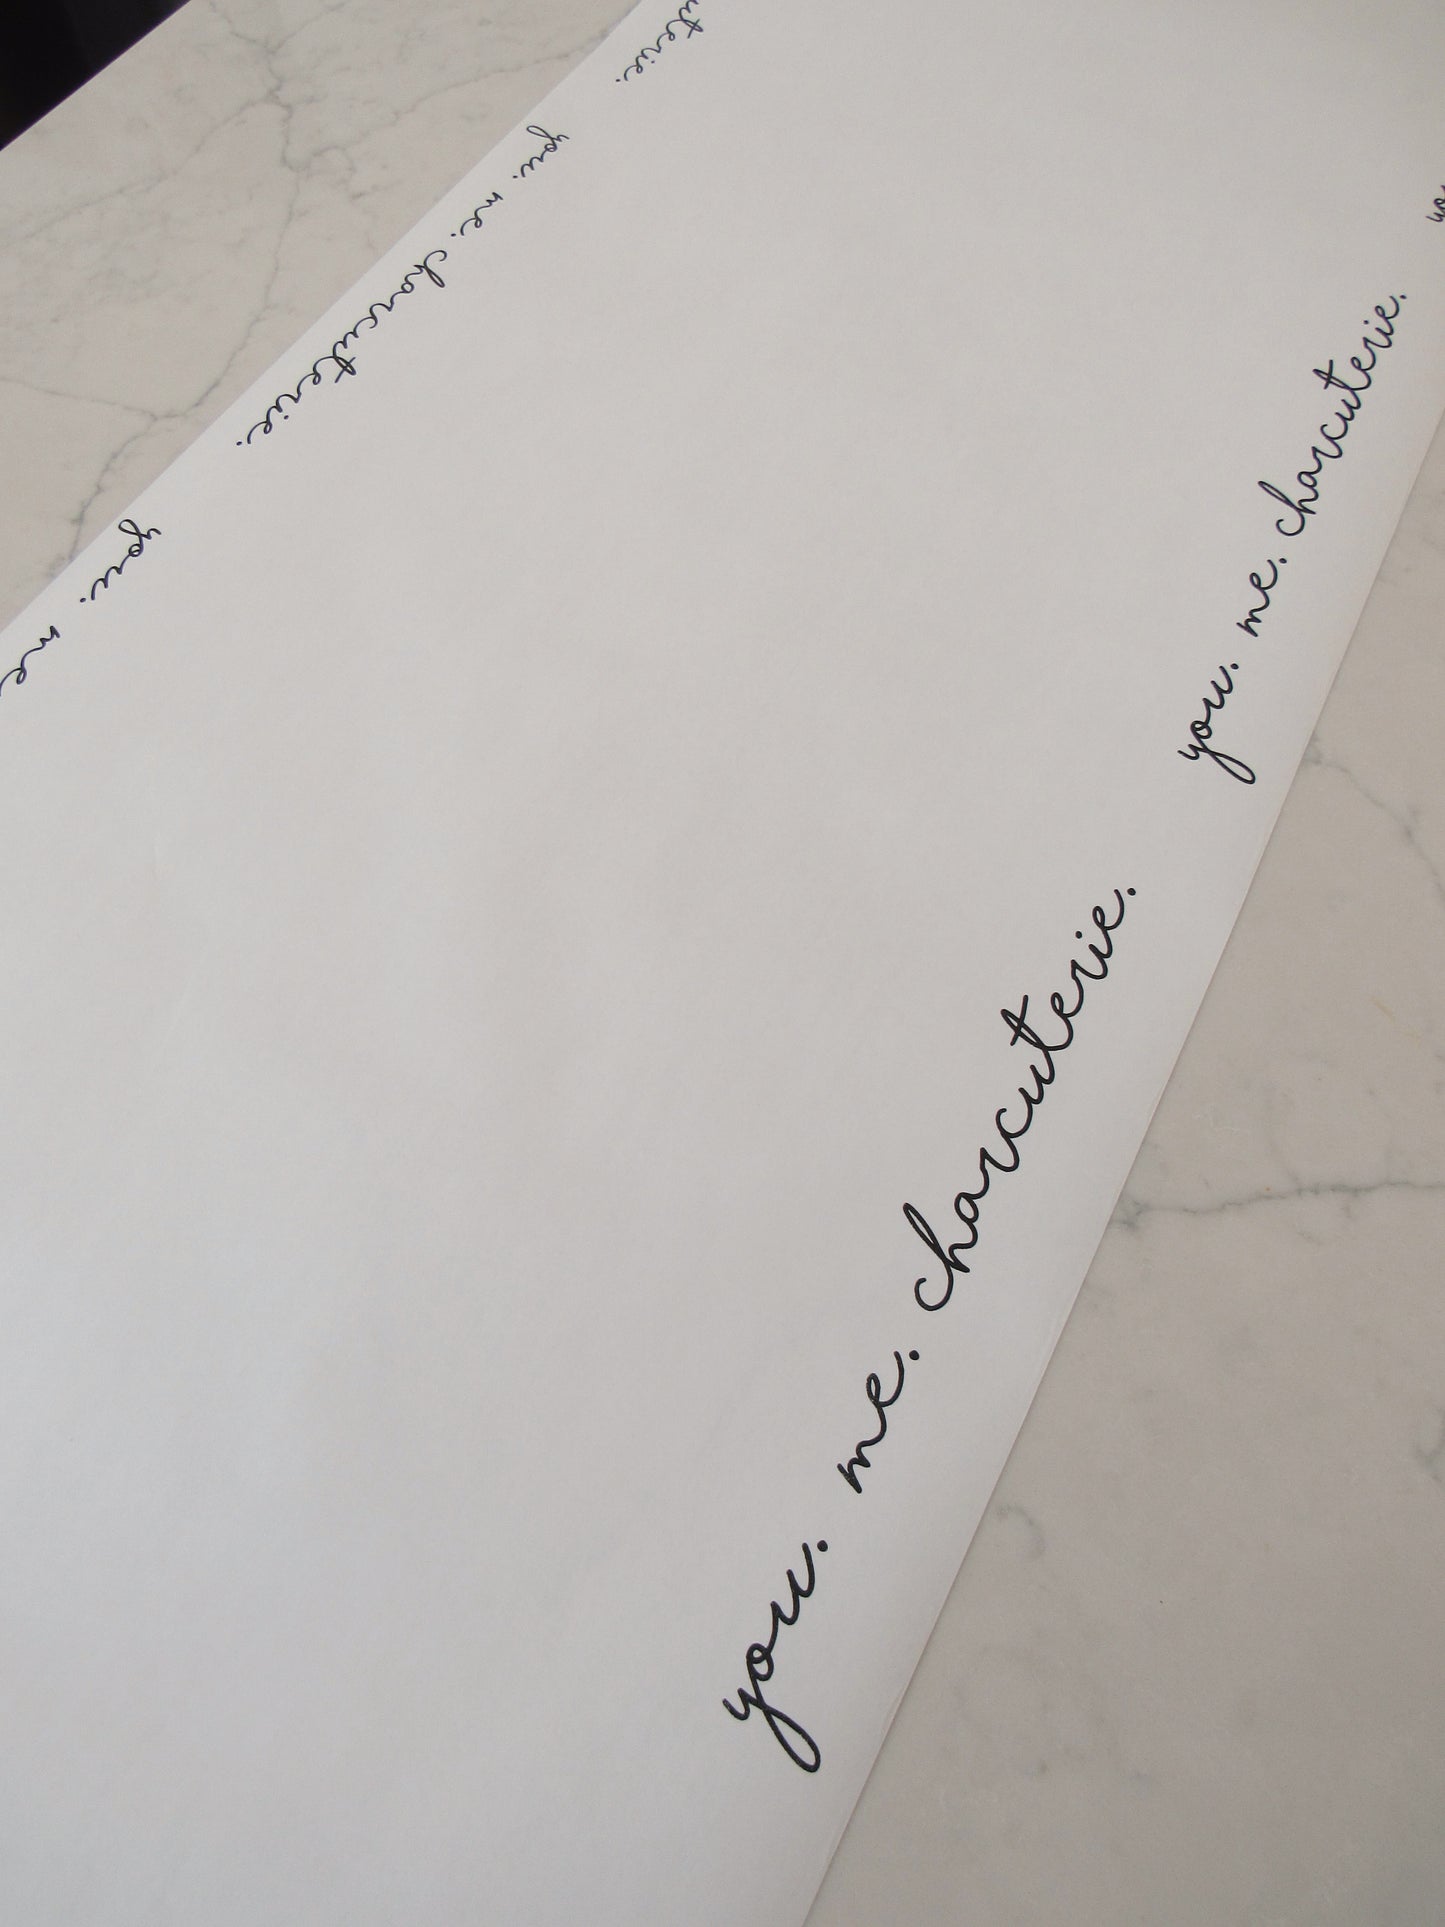 you. me. charcuterie.
you. me. charcuterie.
you. me. charcuterie.
you. me